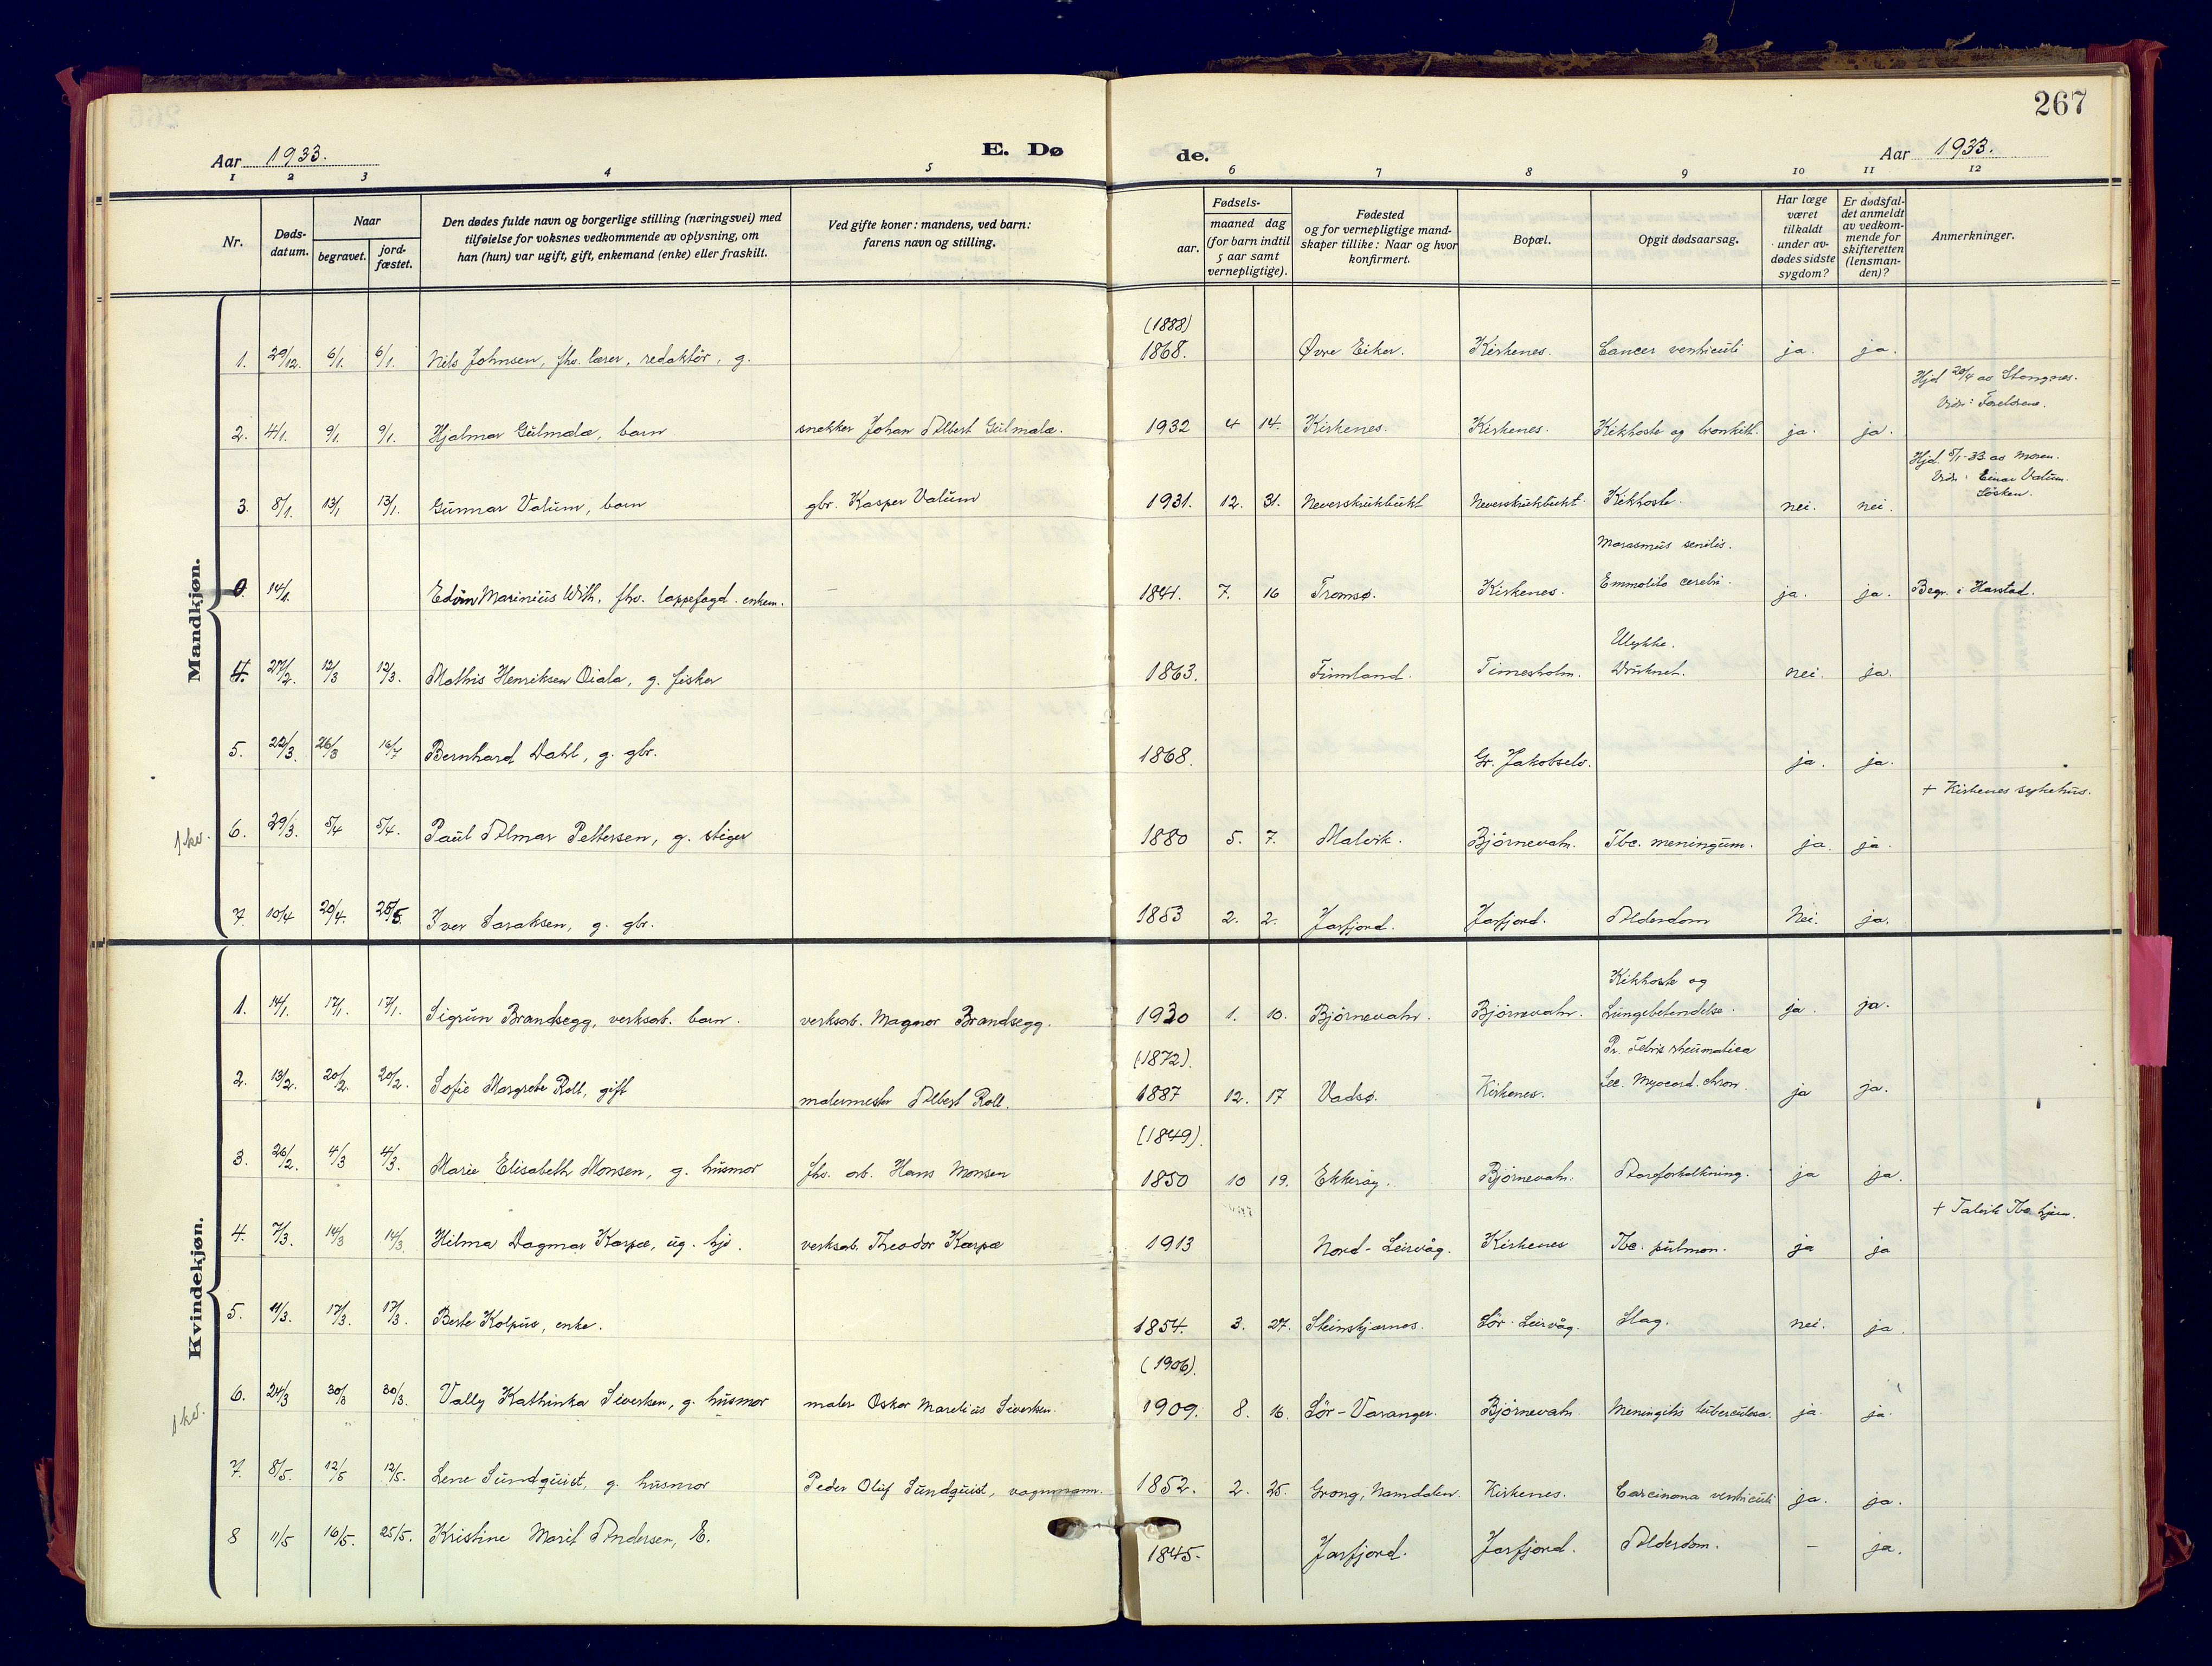 267
Aar 1933.
E. Dø
de.
Aar 1933.
1 2 3 4 5 6 7 8 9 10 11 12
Nr.
Døds-
datum.
Naar
begravet.
jord-
fæstet.
Den dødes fulde navn og borgerlige stilling (næringsvei) med
tilføielse for voksnes vedkommende av oplysning, om
han (hun) var ugift, gift, enkemand (enke) eller fraskilt.
Ved gifte koner: mandens, ved barn:
farens navn og stilling.
Fødsels-
aar.
maaned dag
(for barn indtil
5 aar samt
vernepligtige).
Fødested
og for vernepligtige mand-
skaper tillike: Naar og hvor
konfirmert.
Bopæl.
Opgit dødsaarsag.
Har læge
været
tilkaldt
under av-
dødes sidste
sygdom?
Er dødsfal-
det anmeldt
av vedkom-
mende for
skifteretten
(lensman-
den)?
Anmerkninger.
Mandkjøn.
(1888)
1. 29/12. 6/1. 6/1. Nils Johnsen, fhv. lærer, redaktör, g. 1868. Øvre Eiker. Kirkenes. Cancer ventriculi ja. ja.
Hjd 20/4 av Stangnes.
Vidn: Foreldrene.
2. 4/1. 9/1. 9/1. Hjalmar Gulmala, barn snekker Johan Albert Gulmala. 1932 4 14. Kirkenes. Kirkenes. Kikhoste og bronkitt. ja. ja.
Hjd. 5/1-33 av Moren.
Vidn: Einar Vatum.
Sösken.
3. 8/1. 13/1 13/1. Gunnar Vatum, barn gbr. Kasper Vatum 1931. 12. 31. Neverskrukbukt Neverskrukbukt. Kikhoste. nei. nei.
Marasmus senilis.
0. 14/1. Edvin Marinius With, fhv. lappefogd. enkem. — 1841. 7. 16 Tromsø. Kirkenes. Emmolito cerebri. ja. ja. Begr. i Harstad.
Ulykke.
4. 27/2. 12/3 12/3. Mathis Henriksen Oiala, g. fisker 1863. Finnland. Timesholm. Druknet. nei. ja.
5. 22/3. 26/3 16/7 Bernhard Dahl, g. gbr. 1868. Gr. Jakobselv. ja. ja.
+ Kirkenes sykehus.
1 kv. 6. 29/3. 5/4 5/4. Paul Almar Pettersen, g. stiger 1880 5. 7. Malvik. Björnevatn. Tbc. meningum. ja. ja.
7. 10/4 20/4. 25/5. Iver Saraksen, g. gbr. 1853 2. 2. Jarfjord. Jarfjord. Alderdom Nei. ja.
Kvindekjøn.
Kikhoste og
1. 14/1. 17/1. 17/1. Sigrun Brandsegg, verksarb. barn. verksarb. Magnor Brandsegg. 1930 1. 10. Björnevatn. Björnevatn. Lungebetendelse. ja. ja.
(1872). Pr. Febris rheumatica
2. 13/2. 20/2. 20/2. Sofie Margrete Roll, gift malermester Albert Roll. 1887 12. 17 Vadsø. Kirkenes. Sec. Myocard. chron. ja ja.
(1849).
3. 26/2. 4/3 4/3. Marie Elisabeth Monsen, g. husmor fhv. arb. Hans Monsen 1850 10 19. Ekkeröy. Björnevatn. Aareforkalkning. ja ja.
+ Talvik Tbc hjem.
4. 7/3. 14/3 14/3 Hilma Dagmar Karpæ, ug. hje. verksarb. Theodor Karpæ 1913 Nord-Leirvåg. Kirkenes Tbc. pulmon. ja ja
5. 11/3. 17/3. 17/3. Berte Kolpus, enke. 1854. 3. 27. Steinskjærnes. Sör-Leirvåg. Slag. nei. ja.
(1906).
1 kv. 6. 24/3 30/3 30/3. Vally Kathinka Sivertsen, g. husmor maler Oskar Marelius Sivertsen. 1909. 8. 16. Sör-Varanger. Björnevatn. Meningitis tuberculosa. ja. ja.
7. 8/5. 12/5 12/5. Lene Sundquist, g. husmor Peder Oluf Sundquist, vognmann. 1852. 2. 25. Grong, Namdalen. Kirkenes. Carcinoma ventriculi ja. ja.
8 11/5 16/5. 25/5. Kristine Marit Andersen, E. 1845. Jarfjord. Jarfjord. Alderdom. – ja.